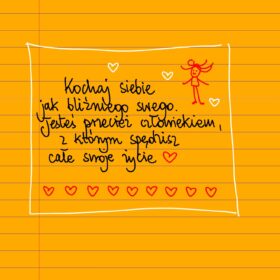 Kochaj siebie
jak bliźniego swego.
Jesteś przecież człowiekiem,
z którym spędzisz
całe swoje życie